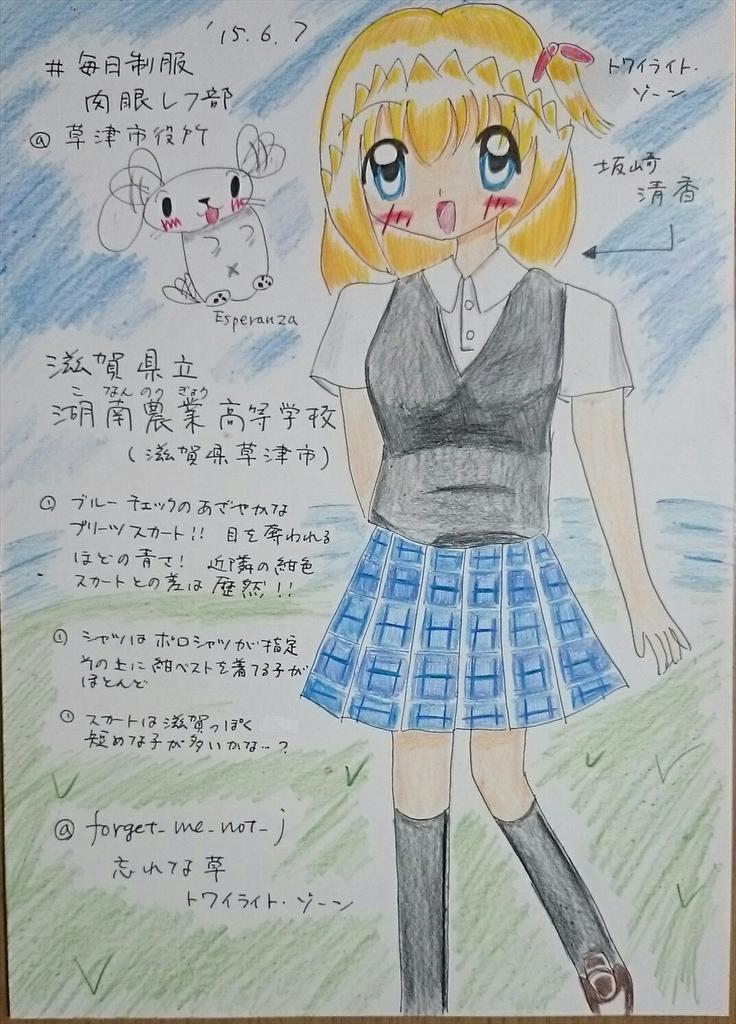 '15.6.7
# 毎日制服
肉眼レフ部
@ 草津市役所
トワイライト・
ゾーン
坂崎
清香
Esperanza
滋賀県立
こなんのうぎょう
湖南農業高等学校
(滋賀県草津市)
① ブルーチェックのあざやかな
プリーツスカート!! 目を奪われる
ほどの青さ! 近隣の紺色
スカートとの差は歴然!!
① シャツはポロシャツが指定
その上に紺ベストを着てる子が
ほとんど
① スカートは滋賀っぽく
短めな子が多いかな…?
@ forget_me_not_j
忘れな草
トワイライト・ゾーン